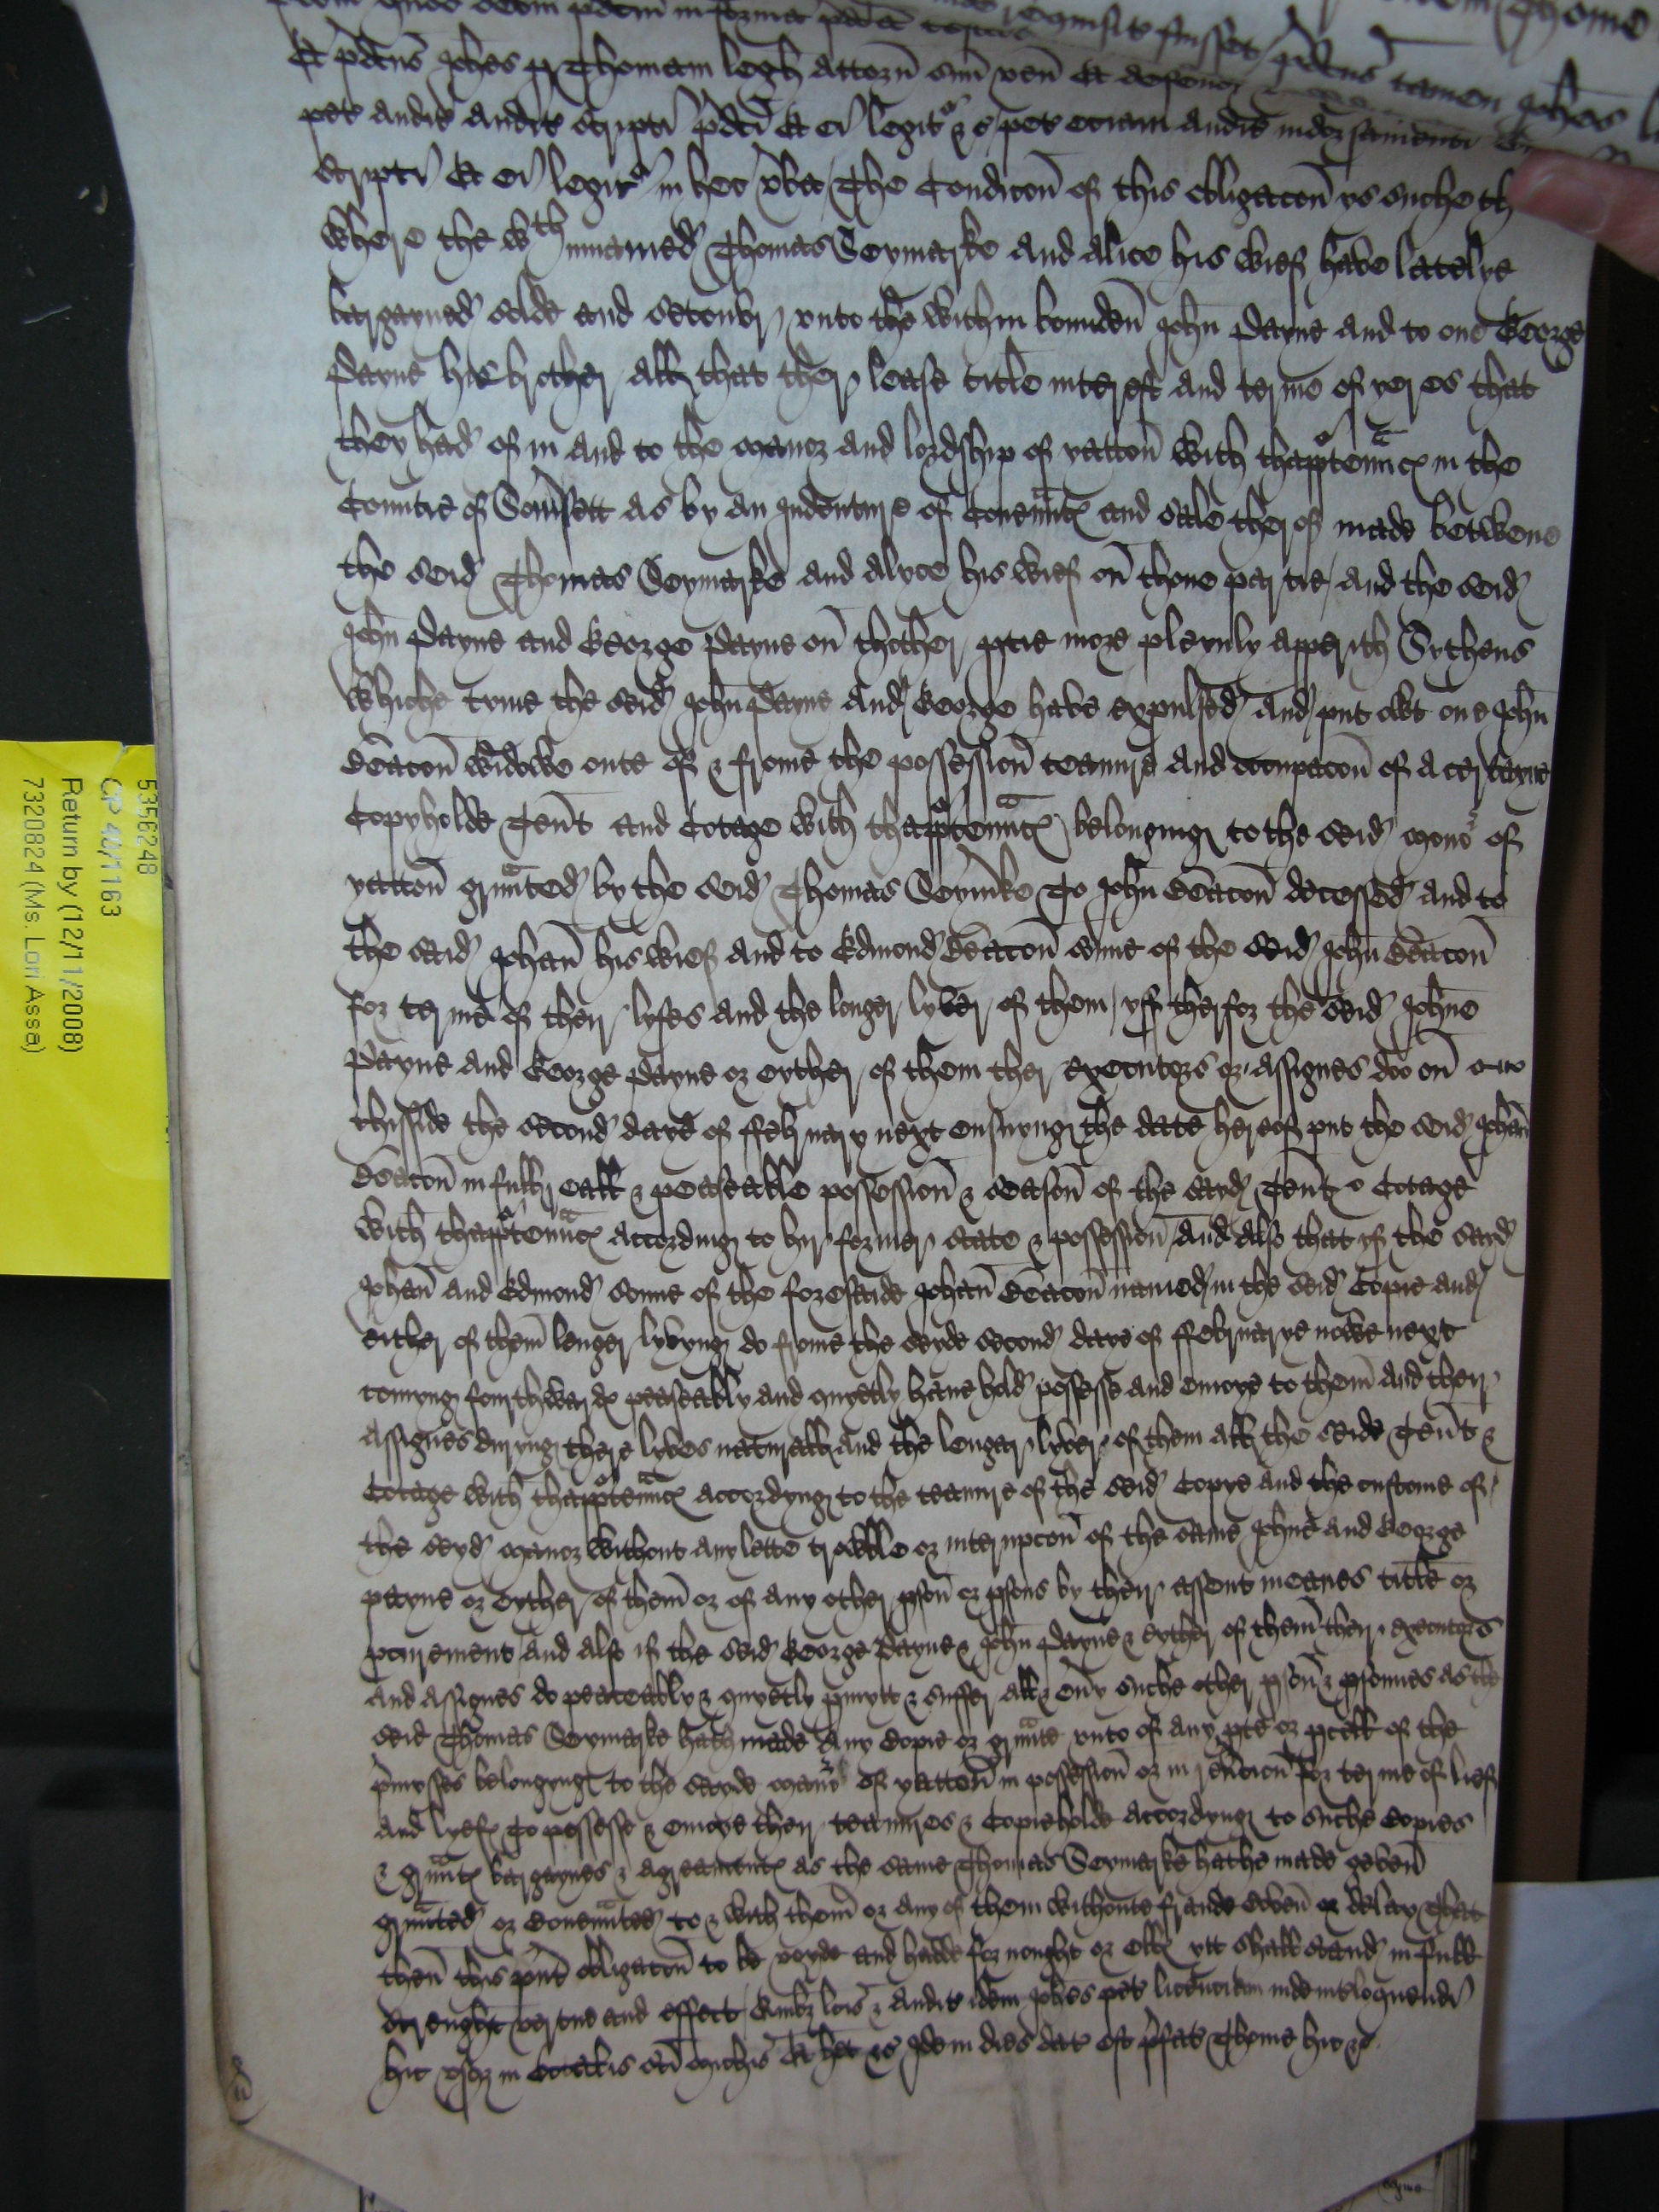 Et pdcus Johes p Thomam legh attorn suu ven Et defend
tamen Johes
pet audit script pdci Et ei legit &c pet eciam audit indorsamenti
scripti Et ei legit in hec vba The Condicon of this obligacon ys suche th
Where the wth innamed Thomas Seymarke and alice his wief have latelye
bargayned solde and sett our unto the within bounden John Payne and to one George
Payne his brother all that ther lease title interest and terme of yeres that
they had of in and to the manor and lordship of yatton with thapptennces in the
Countie of Somsett as by an Indenture of Covennts and sale therof made betwene
the seid Thomas Seymarke and alyce his wief on thone partie and the seid
John Payne and George Payne on thother ptie more pleynly apperith Sythens
Whiche tyme the seid John Payne And George have expulsed And put owt one John
Deacon widowe oute of & frome the possession teanure and occupacon of a certeyne
Copyholde Tent and Cotage with thapptennts belonging to the seid mano of
yatton graunted by the seid Thomas Seymke To John Deacon decessed and to
the said Johan his wief and to Edmond Deacon sonne of the seid John Deacon
for terme of their lyfes and the longer lyver of them yf therfor the seid Johne
Payne and George Payne or eyther of them ther executors or assignes doo on
thisside the second daye of ffebruary next ensuyng the date hereof put the seid Johan
Deacon in full & peaseable possession & season of the sayd Tent & Cotage
With thapptennces according to hir former state & possession And also that yf the sayd
Johan and Edmond sonne of the foresaide Johan Deacon named in the seid Copie and
either of them lenger lyvyng do frome the seyde second daye of ffebruarye nowe next
comyng fourthwards peaseably and quyetly have hold possesse and enioye to them and their
Assignes duryng there lyves naturall and the lenger lyver of them all the seide Tent &
Cotage with thapptennces accordyng to the teanure of the seid Copye and the custome of
the seyd manor without any lette trowble or interupcon of the same Johne and George
payne or eyther of them or of any other pson or psons by their assent meanes title or
pcurement And also if the seid George Payne & John Payne & eyther of them their executors
and assignes do peaceably & quyetly pmytt & suffer all & evy suche other pson & psonnes as the
seid Thomas Seymarke hath made any copie or graunte unto of any pte or pcell of the
pmysses belongyng to the seyde mano of yatton in possession or in revcion for terme of lief
And lyefs To possesse & enioye their teanures & Copieholde accordyng to suche copies
& graunts bargaynes & agreaments as the same Thomas Seymarke hathe made geven
graunted or covenunted to & with them or any of them withoute fraude coven or delay That
then this pnt obligacon to be voyde and hadde for nought or Ells ytt shall stand in full
strenght vertue and effect Quibz lcis & audit idem Johes pet licenciam inde intloquendi
hic usqz in Octabis sci Michis Et het &c Idem dies dat est pfat Thome hic &c
5356248
CP 40/1163
Return by (12/11/2008)
7320824 (Ms. Lori Asse)